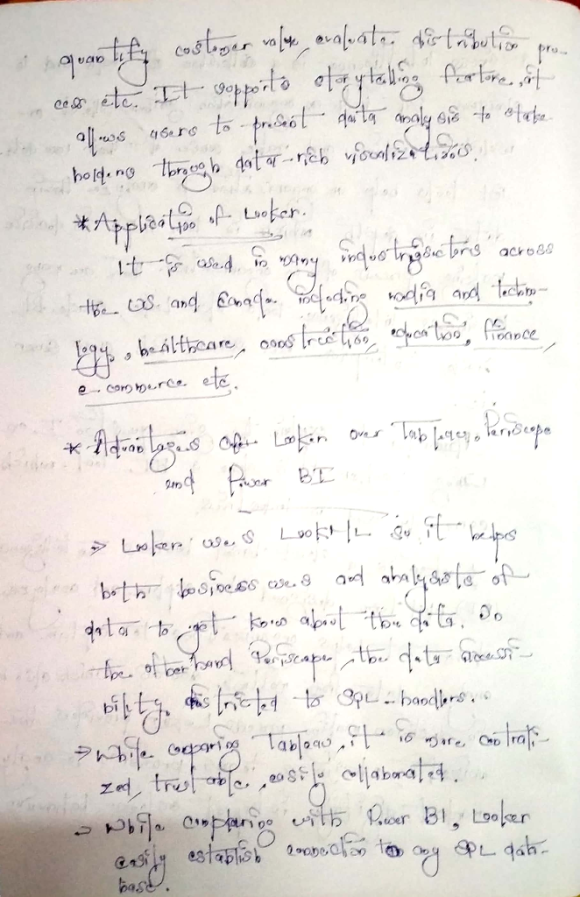 quantify customer value, evaluate distribution pro-
cess etc. It supports storytelling feature, it
allows users to present data analysis to stake
holders through data-rich visualizations.
* Application of Looker.
It is used in many across
the US and Canada including media and techno-
logy, healthcare, construction, education, finance,
e-commerce etc.
* Advantages of Looker over Tableau, Periscope
and Power BI
→ Looker uses LookML so it helps
both business users and analysts of
data to get know about the data. On
the other hand Periscope, the data accessi-
bility, restricted to SQL-handlers.
→ While comparing Tableau, it is more centrali-
zed, trustable, easily collaborated.
→ While comparing with Power BI, Looker
easily establish connection to any SQL data-
base.